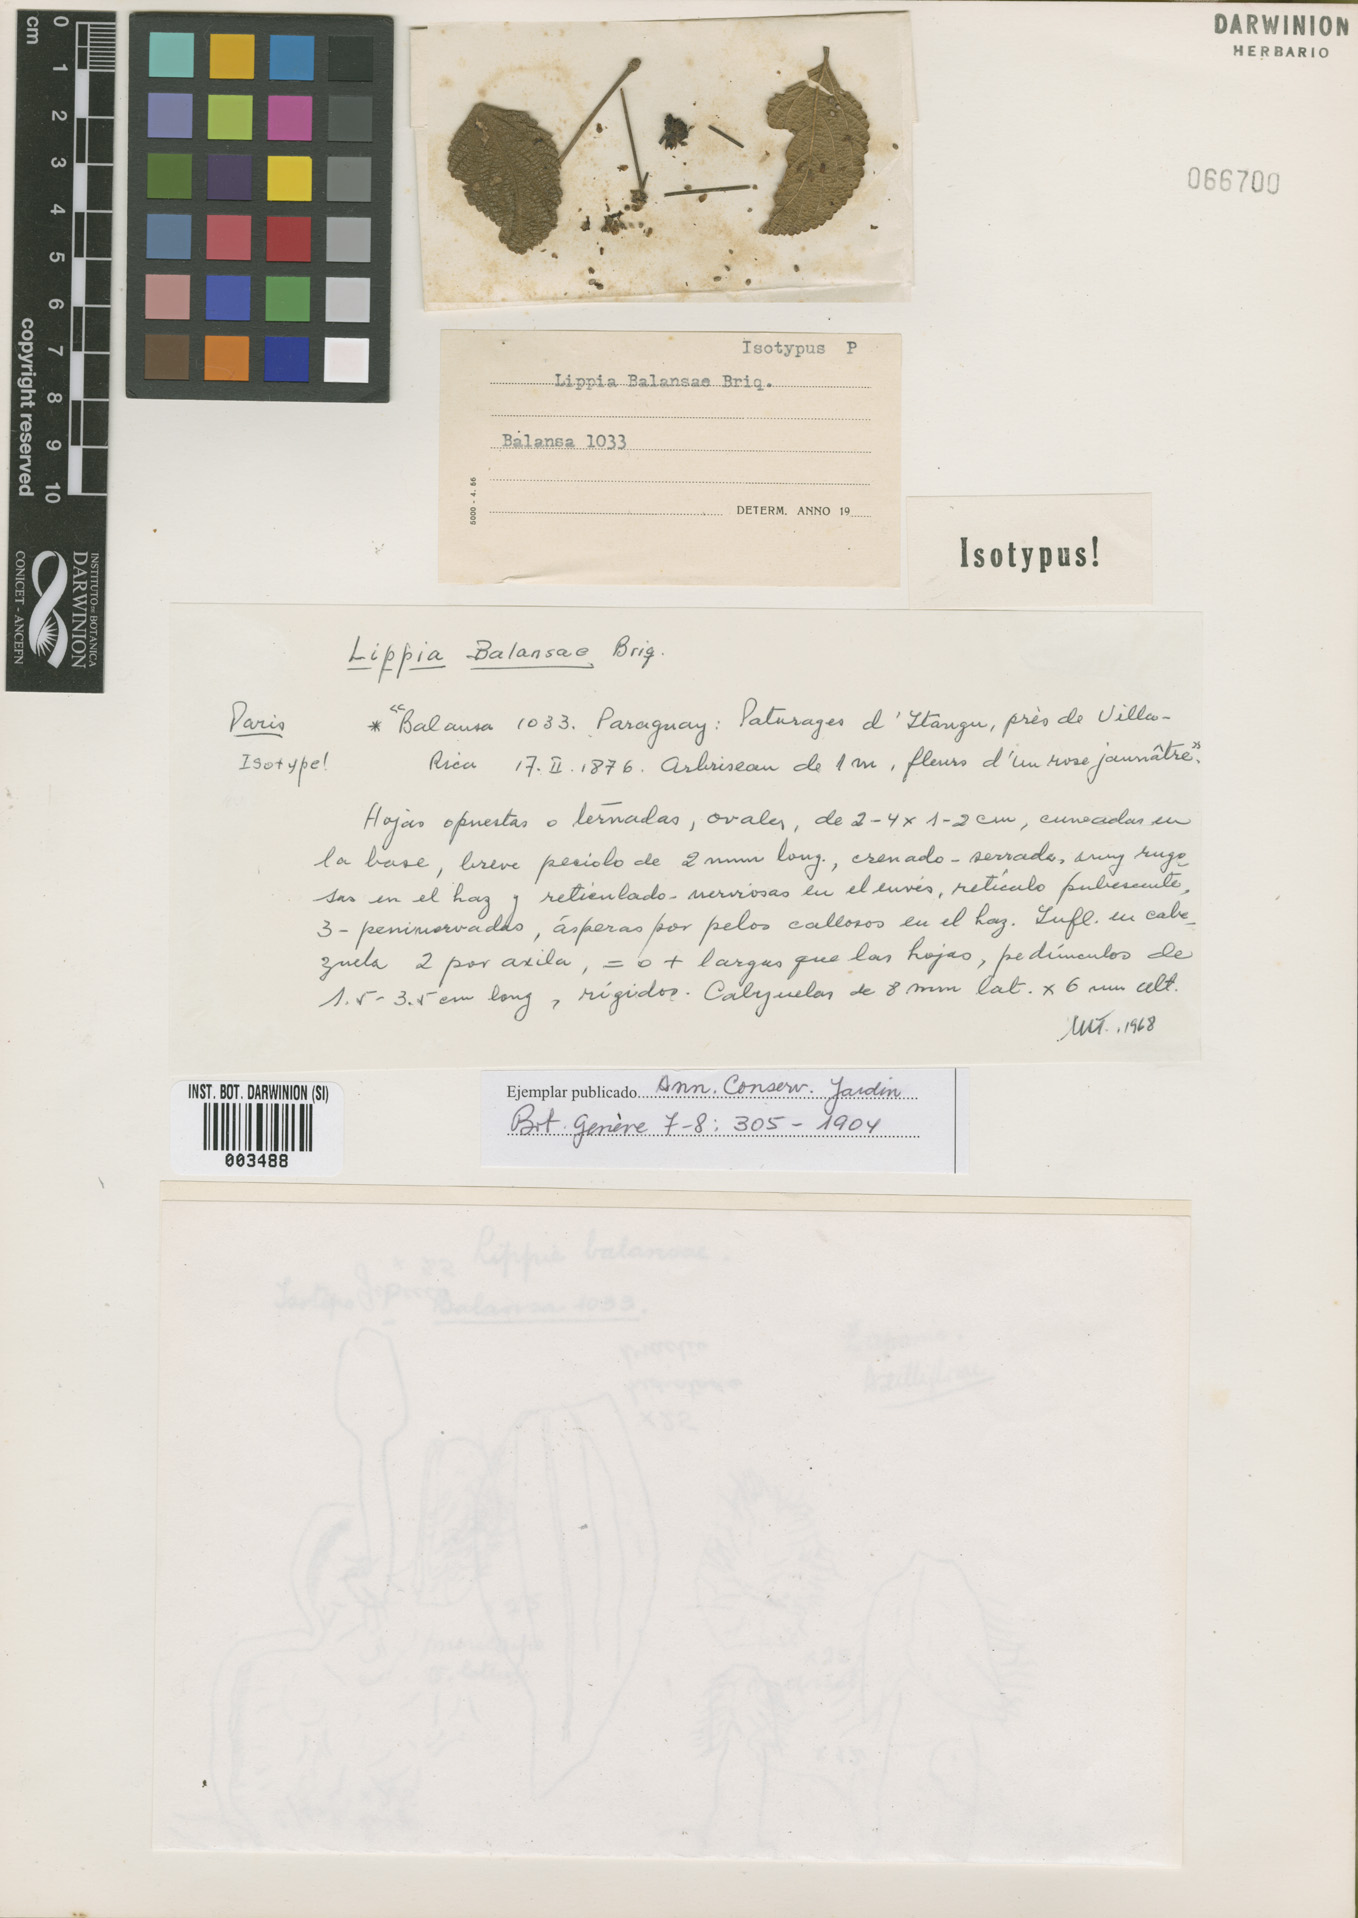 DARWINION
HERBARIO
066700
cm
0 1 2 3 4 5 6 7 8 9 10
copyright reserved
INSTITUTO DE BOTANICA
DARWINION
CONICET - ANCEFN
Isotypus P
Lippia Balansae Briq.
Balansa 1033
5000 - 4. 66
DETERM. ANNO 19
Isotypus!
Lippia Balansae Briq.
Paris
Isotype!
* "Balansa 1033. Paraguay: Paturages d'Itangu, près de Villa-
Rica 17.II.1876. Arbriseau de 1 m, fleurs d'un rose jaunâtre".
Hojas opuestas o ternadas, ovales, de 2-4 x 1-2 cm, cuneadas en
la base, breve peciolo de 2 mm long., crenado-serrado, muy rugo-
sas en el haz y reticulado-nerviosas en el envés, retículo pubescente,
3-peninervadas, ásperas por pelos callosos en el haz. Infl. en cabe-
zuela 2 por axila, = o + largas que las hojas, pedúnculos de
1.5-3.5 cm long, rígidos. Cabezuelas de 8 mm lat. x 6 mm alt.
1968
INST. BOT. DARWINION (SI)
003488
Ejemplar publicado Ann. Conserv. Jardin
Bot. Genève 7-8: 305 - 1904
Lippia balansae.
Isotipo
Balansa 1033.
x25